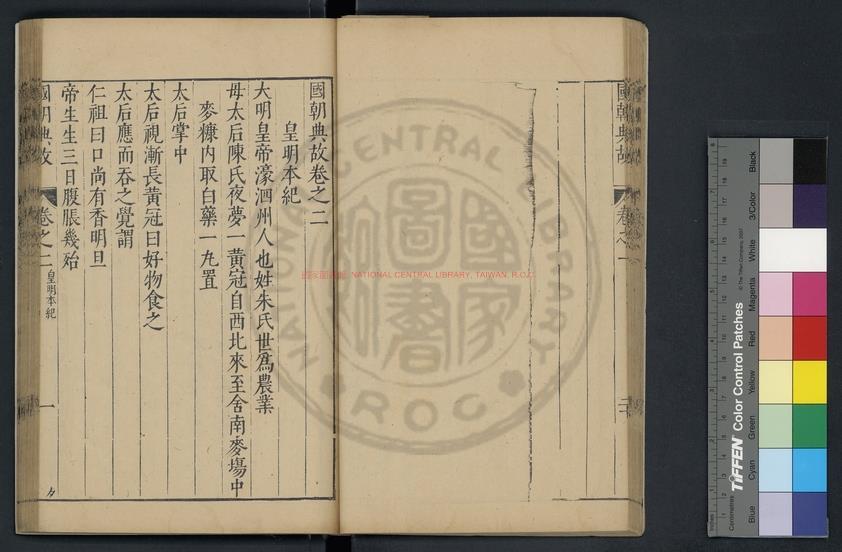 國朝典故
卷之一
國朝典故卷之二
皇明本紀
大明皇帝濠泗州人也姓朱氏世爲農業
母太后陳氏夜夢一黃冠自西北來至舍南麥場中
麥糠內取白藥一丸置
太后掌中
太后視漸長黃冠曰好物食之
太后應而吞之覺謂
仁祖曰口尚有香明旦
帝生生三日腹脹幾殆
國朝典故
卷之二
皇明本紀
一
國家圖書館 NATIONAL CENTRAL LIBRARY, TAIWAN, R.O.C.
NATIONAL CENTRAL LIBRARY
ROC
Black
3/Color
White
Magenta
Red
Yellow
Green
Cyan
Blue
TIFFEN Color Control Patches
© The Tiffen Company, 2007
Centimetres
Inches